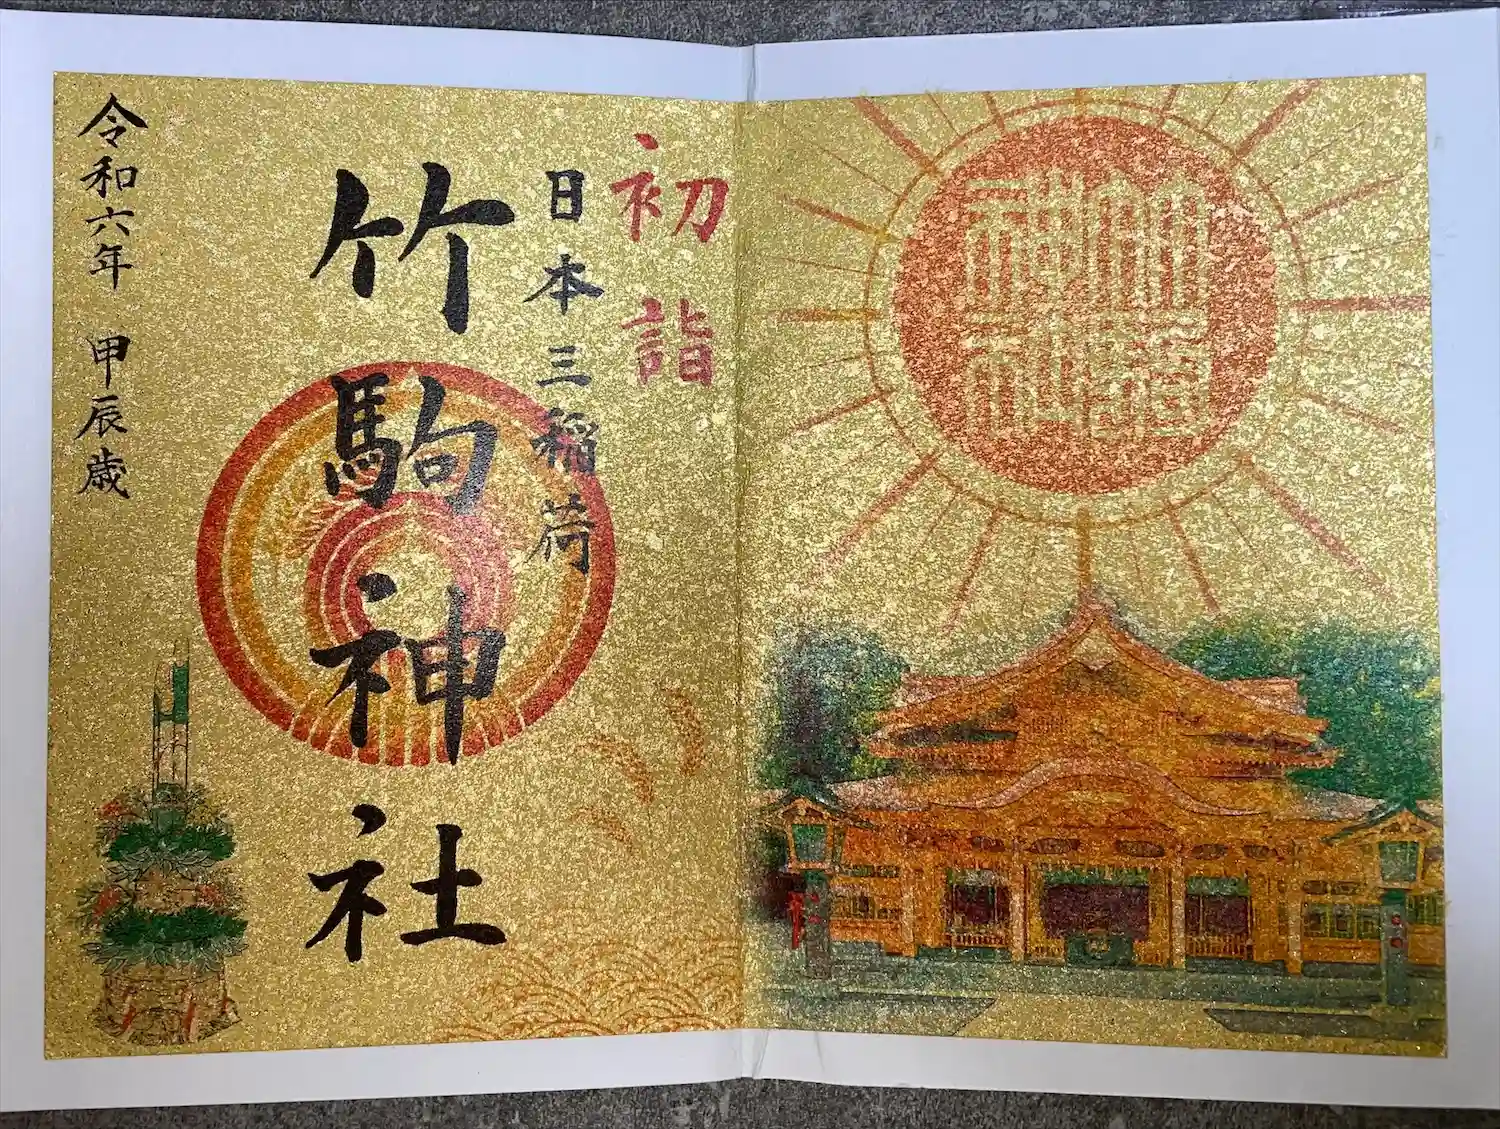 竹駒神社
初詣
日本三稲荷
竹駒神社
令和六年 甲辰歳